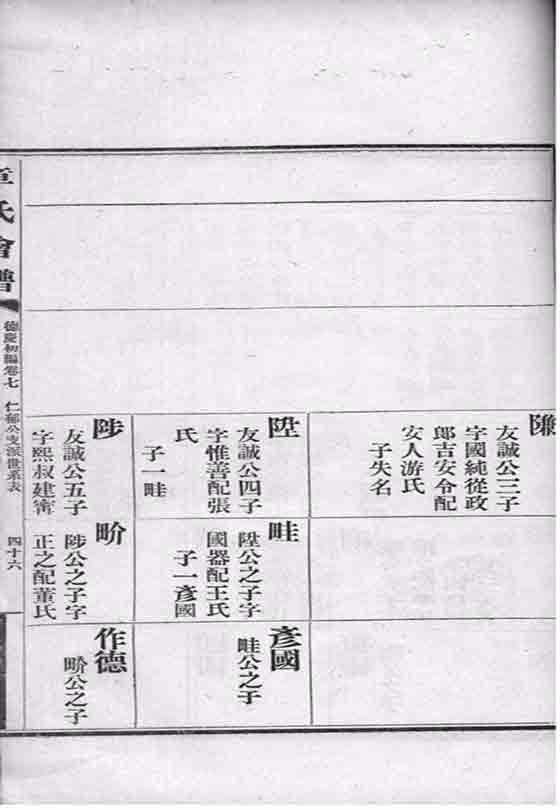 友誠公三子
字國純從政
郎吉安令配
安人游氏
子失名
陞
友誠公四子
字惟善配張
氏
子一畦
陟
友誠公五子
字熙叔建甯
畦
陞公之子字
國器配王氏
子一彥國
陟公之子字
正之配董氏
彥國
畦公之子
作德
公之子
章氏會譜
德慶初編卷七
仁郁公支派世系表
四十六